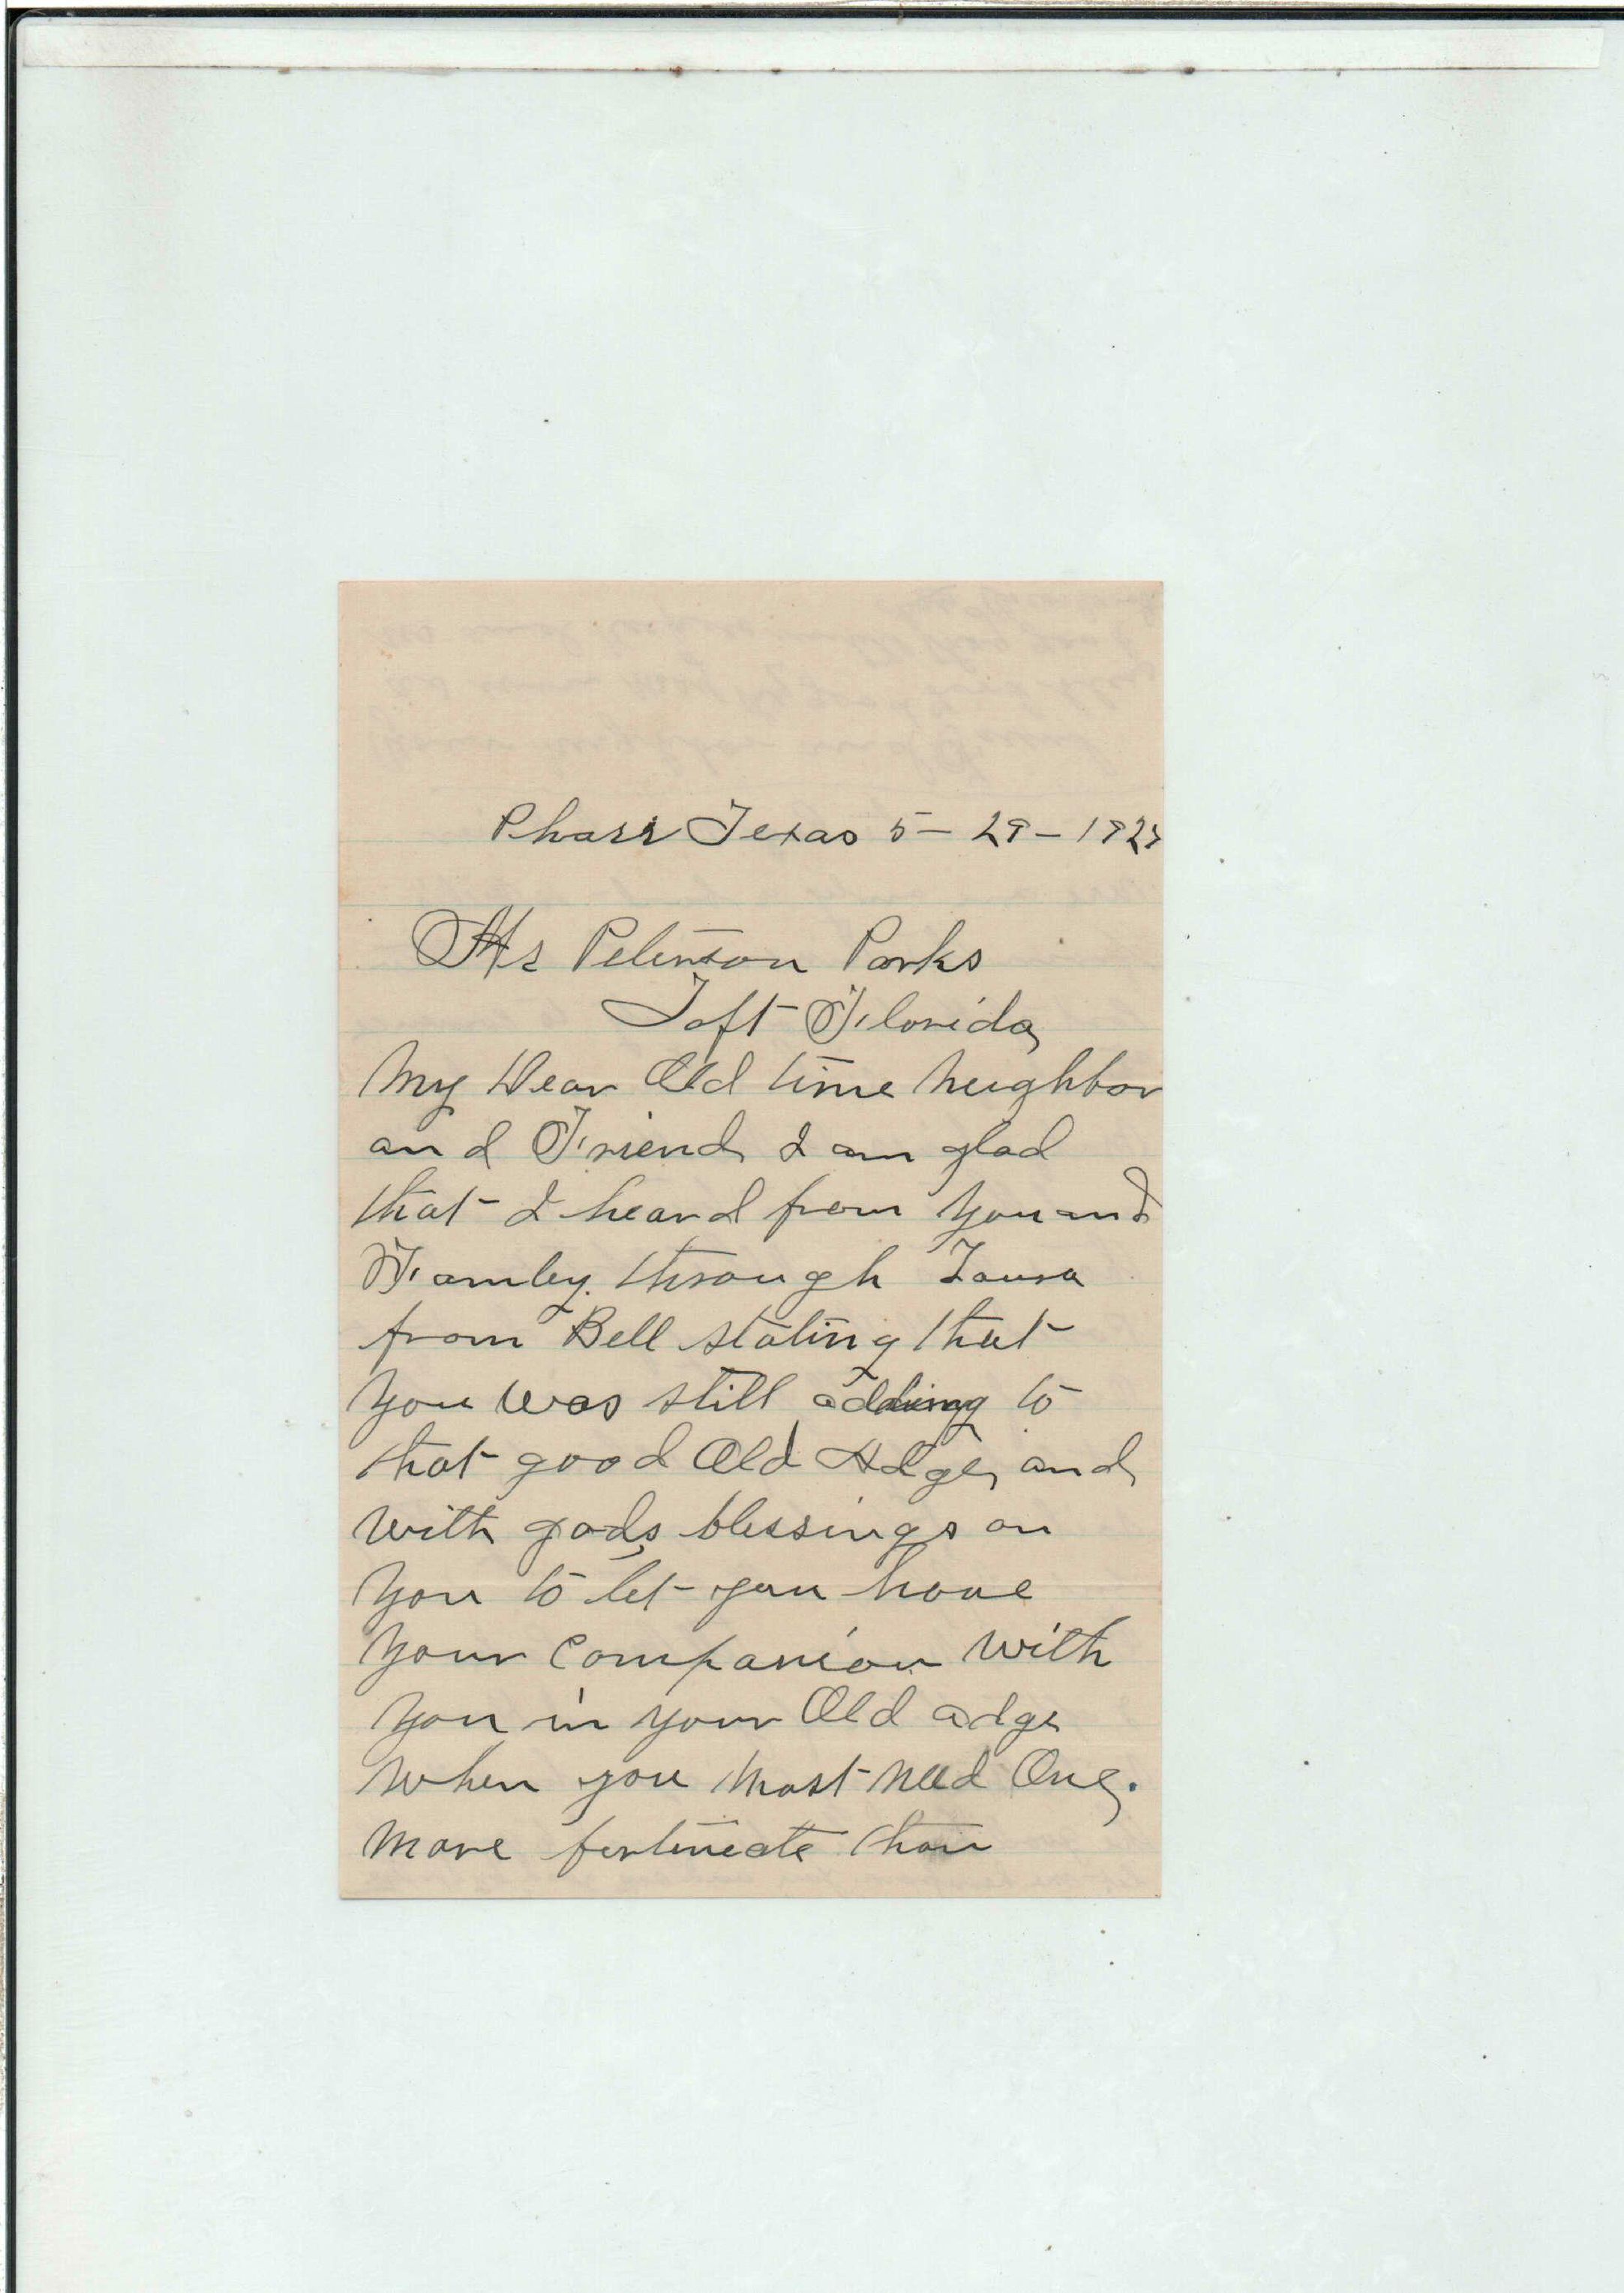 Pharr Texas 5-29-192
Mr Peterson Parks
Taft Florida
My Dear Old time Neighbor
and Friend I am glad
that I heard from you and
Famley through Laura
from Bell stating that
you was still adding to
that good Old Adge, and
with gods blessings on
you to let you have
your Companion with
you in your Old adge
when you most need One.
more fortinate than